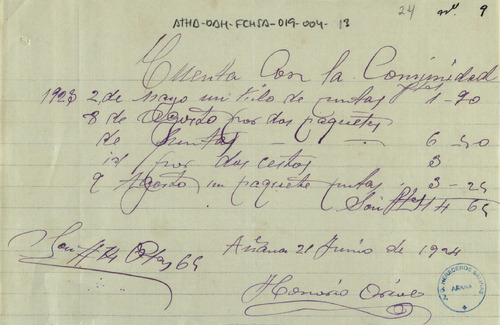 ATHA-DAH-FCHSA-019-004-13
24 nº 9
Cuenta Con la Comunidad
Ptas
1923 2 de mayo un kilo de puntas 1-90
8 de Agosto por dos paquetes
de puntas - - 6 50
id por dos cestos 3
9 Agosto un paquete puntas 3-25
Son Ptas 14 65
Son 14 Ptas 65
Añana 21 Junio de 1924
Honorio
AÑANA